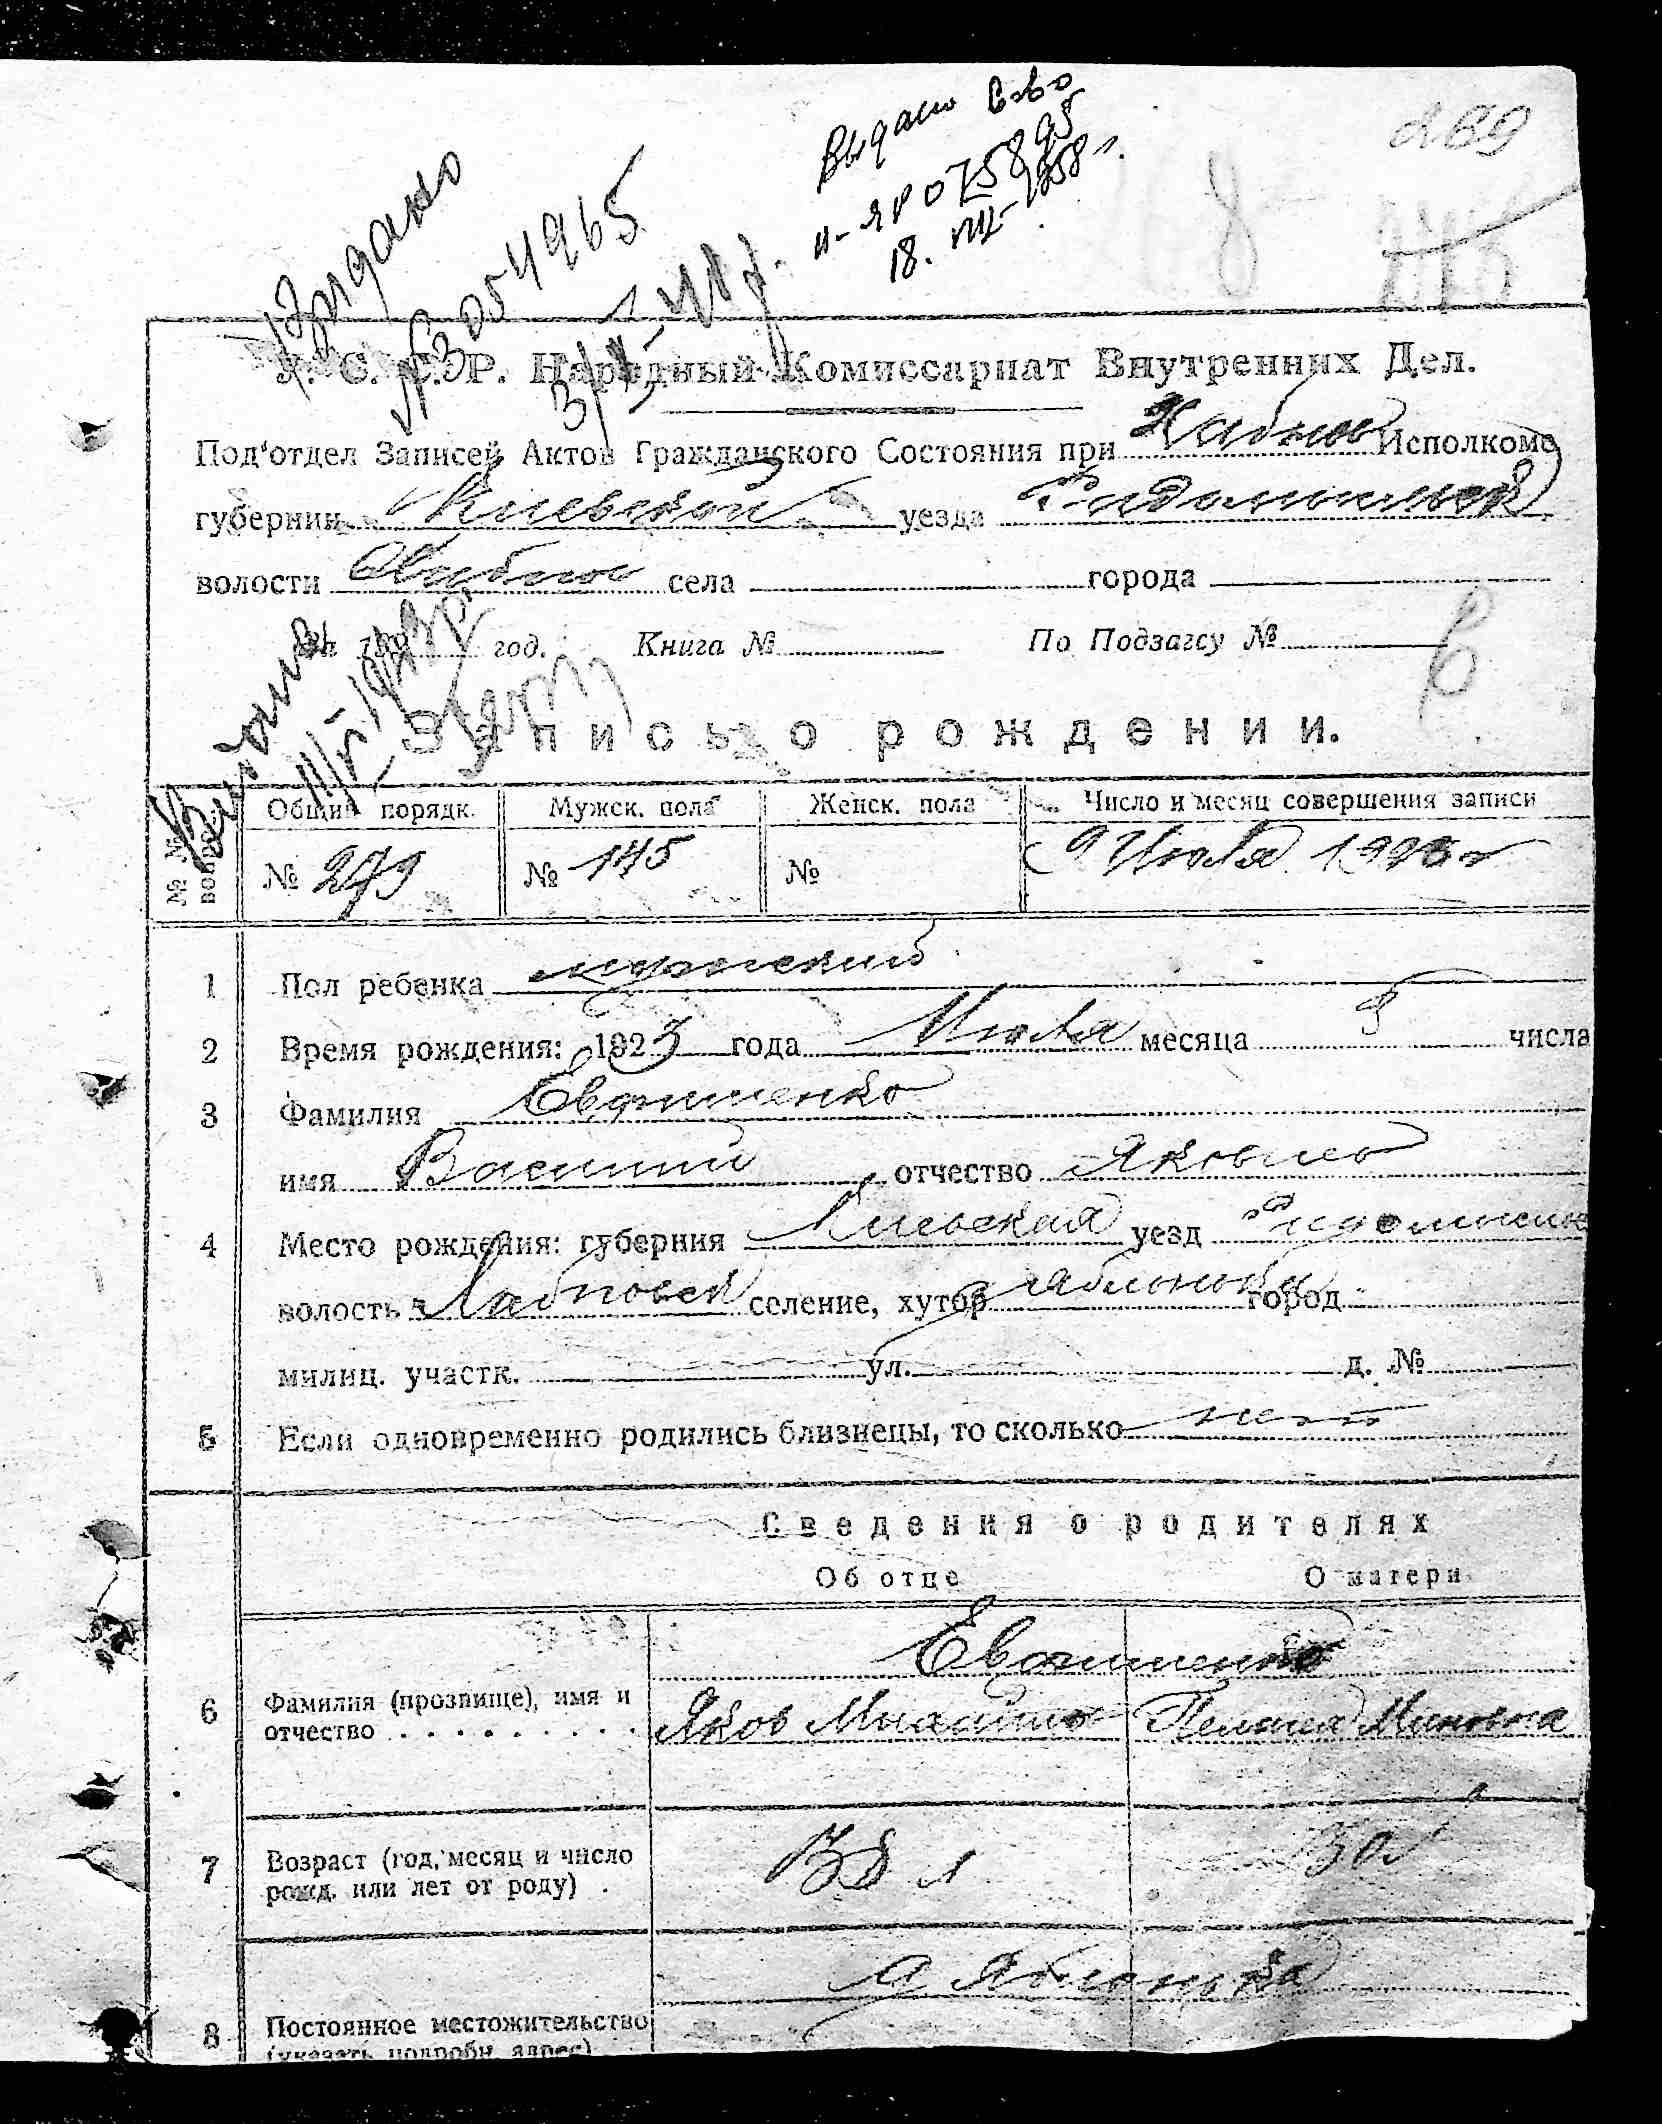 269
Выдано
№ 3054965
Выдано Св-во
II-ЯР 075895
18. VIII-1958 г.
У. С. С. Р. Народный Комиссариат Внутренних Дел.
Под'отдел Записей Актов Гражданского Состояния при Хабное Исполкоме
губернии Киевской уезда Радомысльск
волости Хабное села города
год. Книга № По Подзагсу №
Запись о рождении.
№ № вопр. Общий порядк. Мужск. пола Женск. пола Число и месяц совершения записи
№ 279 № 145 № 9 Июля 1923 г
1 Пол ребенка мужский
2 Время рождения: 1923 года Июля месяца числа
3 Фамилия Евтушенко
имя Василий отчество Яковлев
4 Место рождения: губерния Киевская уезд Радомысльск
волость Хабновск селение, хутор Яблонька город
милиц. участк. ул. д. №
5 Если одновременно родились близнецы, то сколько нет
Сведения о родителях
Об отце О матери
Евтушенко
6 Фамилия (прозвище), имя и
отчество Яков Михайлов Пелагея Миновна
7 Возраст (год, месяц и число
рожд. или лет от роду) 38 л 30 л
д Яблонька
8 Постоянное местожительство
(указать подробн. адрес)